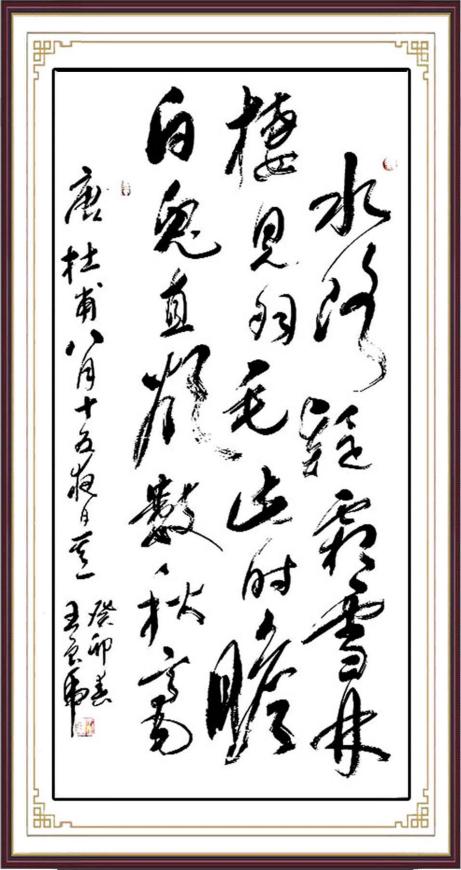 水路疑霜雪林
棲見羽毛此时瞻
白兔直欲數秋毫
唐杜甫八月十五夜月其一
癸卯春
王 虎